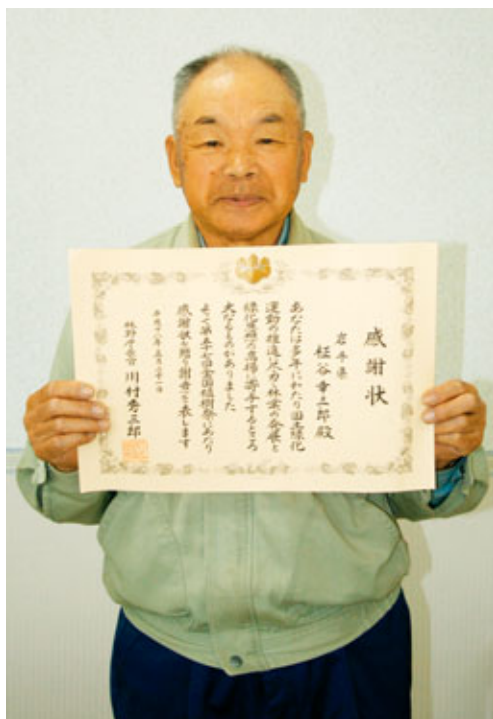 感謝状
岩手県
柾谷幸三郎殿
あなたは多年にわたり国土緑化
運動の推進に尽力し林業の発展と
緑化思想の高揚に寄与するところ
大なるものがありました
よって第五十七回全国植樹祭にあたり
感謝状を贈り謝意を表します
平成十八年五月二十一日
林野庁長官 川村秀三郎